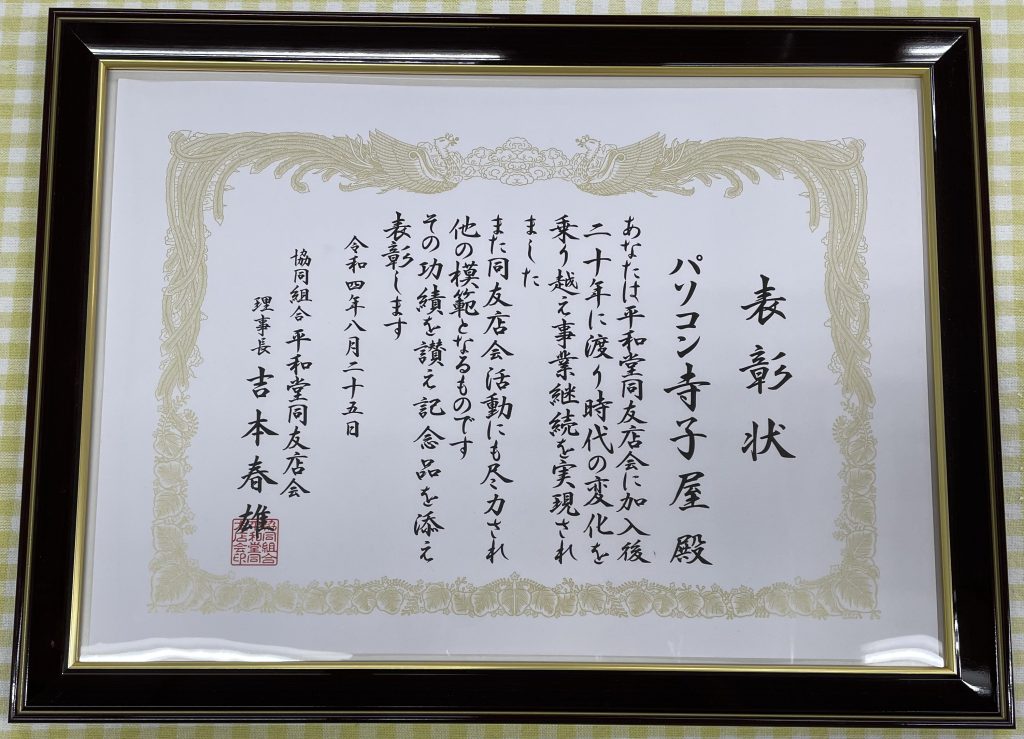 表彰状
パソコン寺子屋 殿
あなたは平和堂同友店会に加入後
二十年に渡り時代の変化を
乗り越え事業継続を実現され
ました
また同友店会活動にも尽力され
他の模範となるものです
その功績を讃え記念品を添え
表彰します
令和四年八月二十五日
協同組合 平和堂同友店会
理事長 吉本春雄
協同組合
平和堂同
友店会印